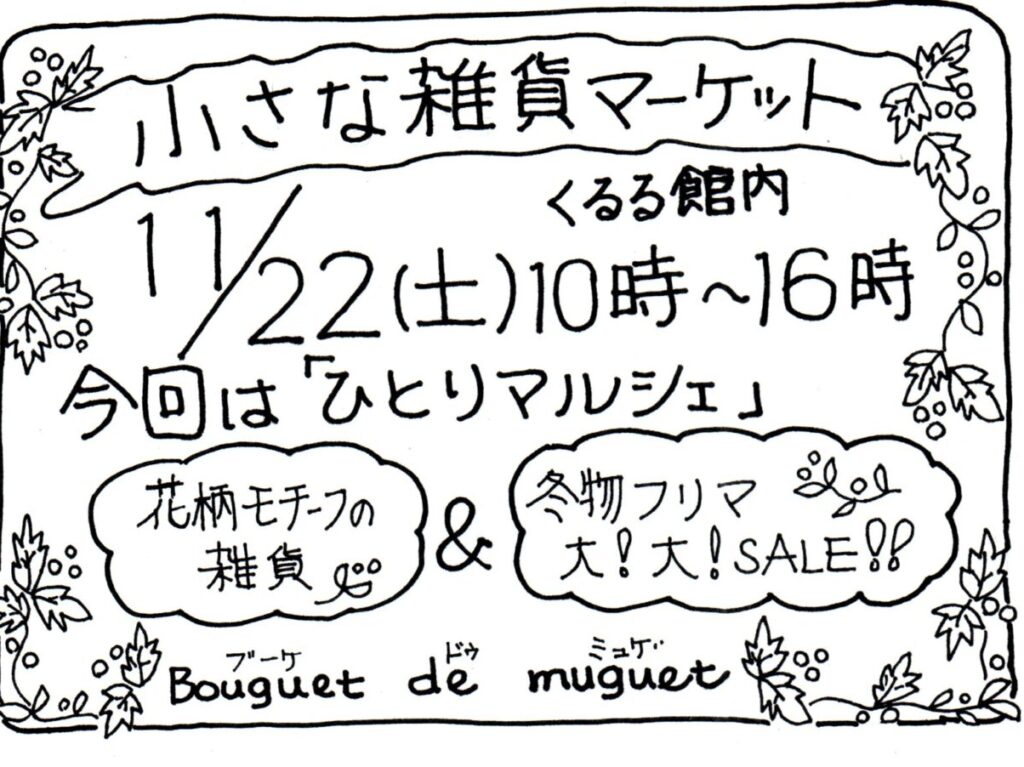 小さな雑貨マーケット
くるる館内
11/22(土)10時~16時
今回は「ひとりマルシェ」
花柄モチーフの
雑貨
&
冬物フリマ
大!大!SALE!!
ブーケ ドゥ ミュゲ
Bouguet de muguet